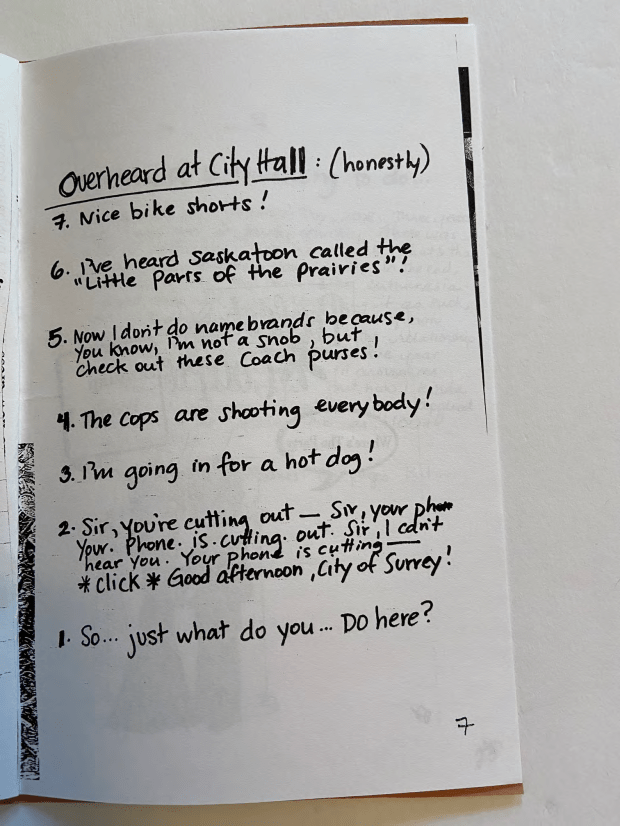 Overheard at City Hall : (honestly)
7. Nice bike shorts!
6. I've heard Saskatoon called the
"Little Paris of the Prairies"!
5. Now I don't do name brands because,
you know, I'm not a snob, but
check out these Coach purses!
4. The cops are shooting everybody!
3. I'm going in for a hot dog!
2. Sir, you're cutting out — Sir, your phon
Your. Phone. is. cutting. out. Sir, I can't
hear you. Your phone is cutting —
*click* Good afternoon, City of Surrey!
1. So... just what do you... Do here?
7